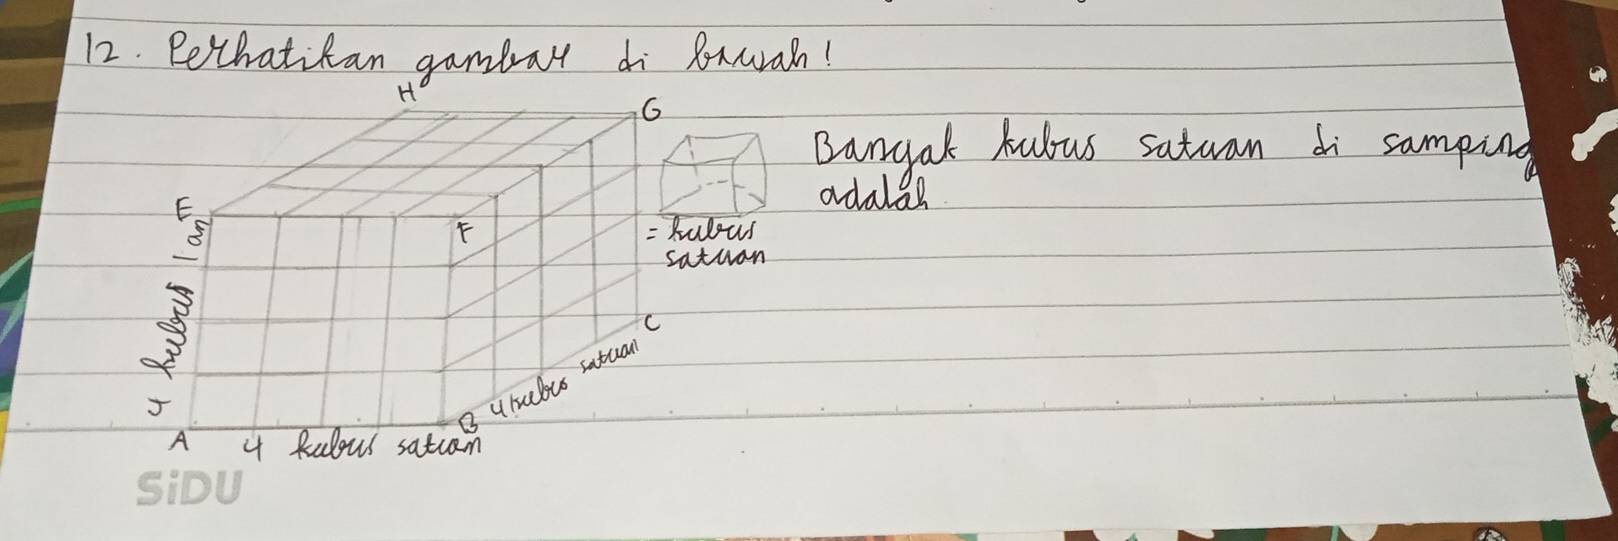 12. Perhatikan gambar di bawah!
H
G
E
F
Banyak kubus satuan di samping
adalah
= kubus
satuan
4 kubus
C
4 kubus satuan
B
A
4 kubus satuan
SiDU